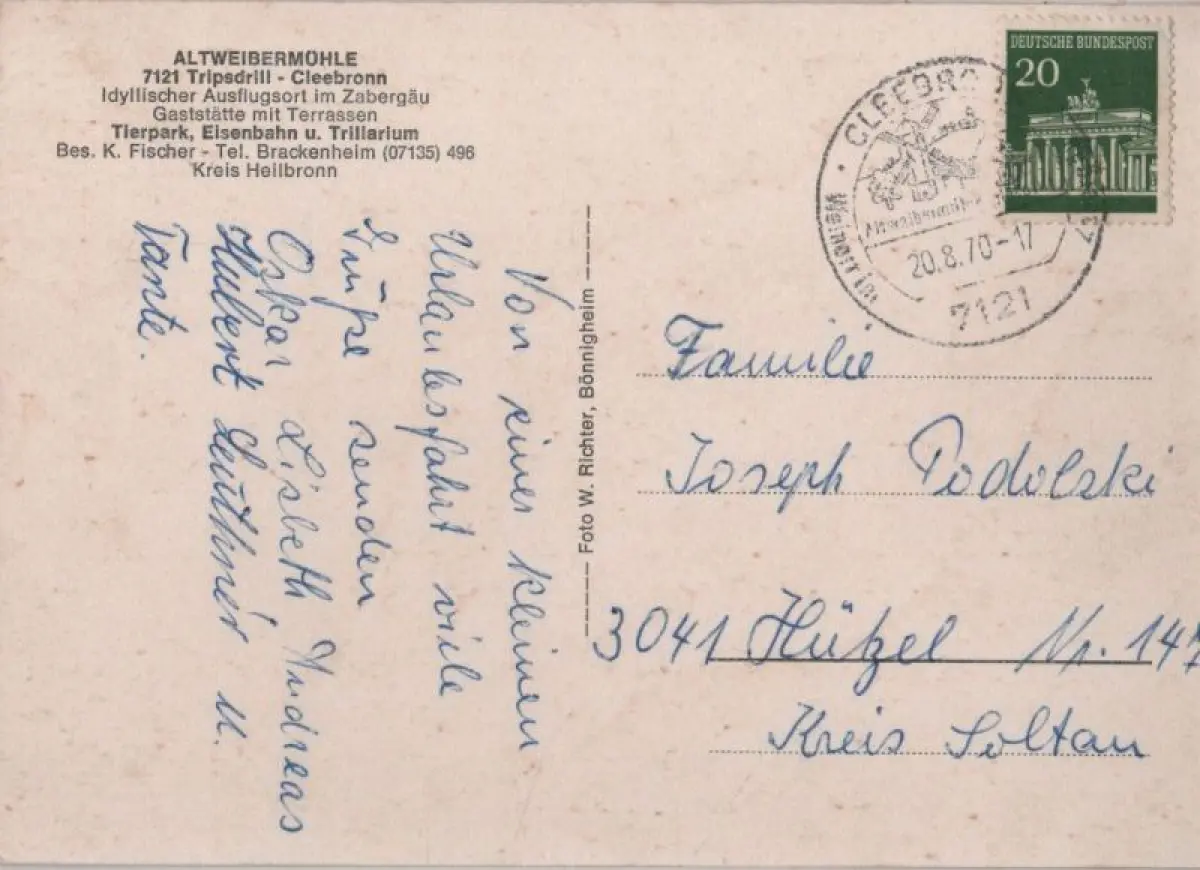 ALTWEIBERMÜHLE
7121 Tripsdrill - Cleebronn
Idyllischer Ausflugsort im Zabergäu
Gaststätte mit Terrassen
Tierpark, Eisenbahn u. Trillarium
Bes. K. Fischer - Tel. Brackenheim (07135) 496
Kreis Heilbronn
Von einer kleinen
Urlaubsfahrt viele
Grüße senden
Oskar Lisbeth Andreas
Hubert Leuthner u.
Tante.
Foto W. Richter, Bönnigheim
DEUTSCHE BUNDESPOST
20
CLEEBRO
Altweibermüh
20.8.70-17
7121
Familie
Joseph Podolski
3041 Hützel Nr. 147
Kreis Soltau